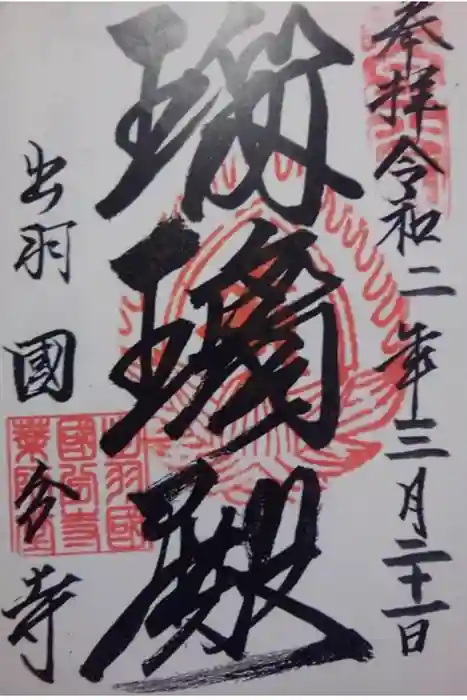 奉拝 令和二年三月二十一日
瑠璃殿
出羽國分寺
出羽國
國分寺